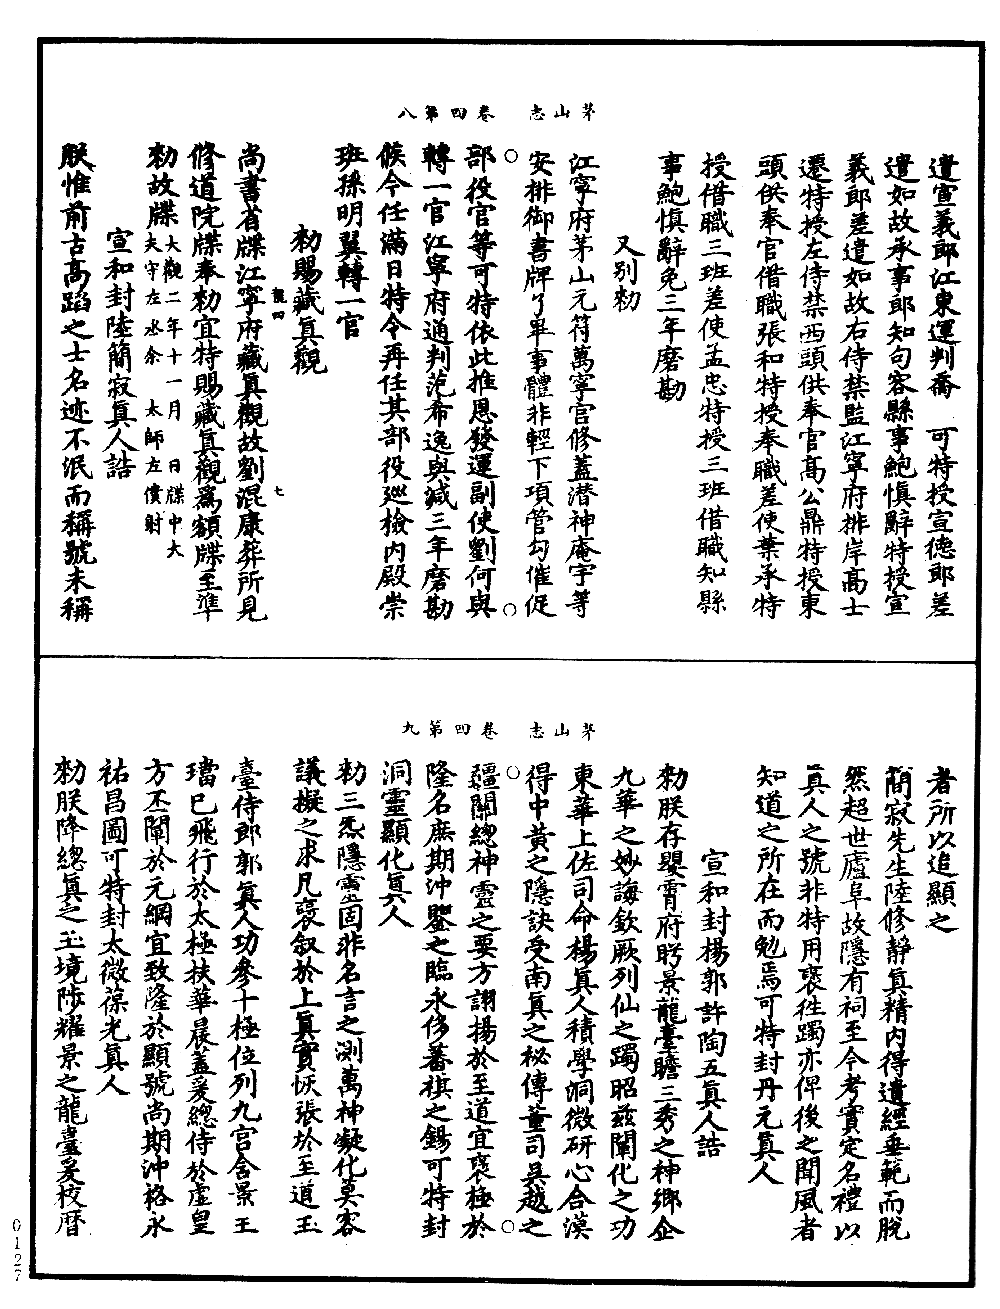 茅山志　卷四第八
遣宣義郎江東運判喬　可特授宣德郎差
遣如故承事郎知句容縣事鮑慎辭特授宣
義郎差遣如故右侍禁監江寧府排岸高士
遷特授左侍禁西頭供奉官高公鼎特授東
頭供奉官借職張和特授奉職差使葉承特
授借職三班差使孟忠特授三班借職知縣
事鮑慎辭免三年磨勘
又別勑
江寧府茅山元符萬寧宮修蓋潛神庵宇等
安排御書牌了畢事體非輕下項管勾催促
部役官等可特依此推恩發運副使劉何與
轉一官江寧府通判范希逸與減三年磨勘
候今任滿日特令再任其部役巡檢內殿崇
班孫明翼轉一官
勑賜藏真觀
龍四　七
尚書省牒江寧府藏真觀故劉混康葬所見
修道院牒奉勑宜特賜藏真觀為額牒至準
勑故牒大觀二年十一月　日牒中大
夫守左丞余　太師左僕射
宣和封陸簡寂真人誥
朕惟前古高蹈之士名迹不泯而稱號未稱
茅山志　卷四第九
者所以追顯之
簡寂先生陸修靜真精內得遺經垂範而脫
然超世廬阜故隱有祠至今考實定名禮以
真人之號非特用褒徃躅亦俾後之聞風者
知道之所在而勉焉可特封丹元真人
宣和封楊郭許陶五真人誥
勑朕存嬰霄府眄景龍臺瞻三秀之神鄉企
九華之妙誨欽厥列仙之躅昭茲闡化之功
東華上佐司命楊真人積學洞微研心合漠
得中黃之隱訣受南真之秘傳董司吳越之
疆關總神靈之要方詡揚於至道宜褒極於
隆名庶期沖鑒之臨永侈蕃祺之錫可特封
洞靈顯化真人
勑三炁隱靈固非名言之測萬神凝化莫容
議擬之求凡褒敘於上真實恢張於至道玉
臺侍郎郭真人功參十極位列九宮含景玉
璫已飛行於太極扶華晨蓋爰總侍於虛皇
方丕闡於元綱宜致隆於顯號尚期沖格永
祐昌圖可特封太微葆光真人
勑朕降總真之玉境陟耀景之龍臺爰校曆
0127